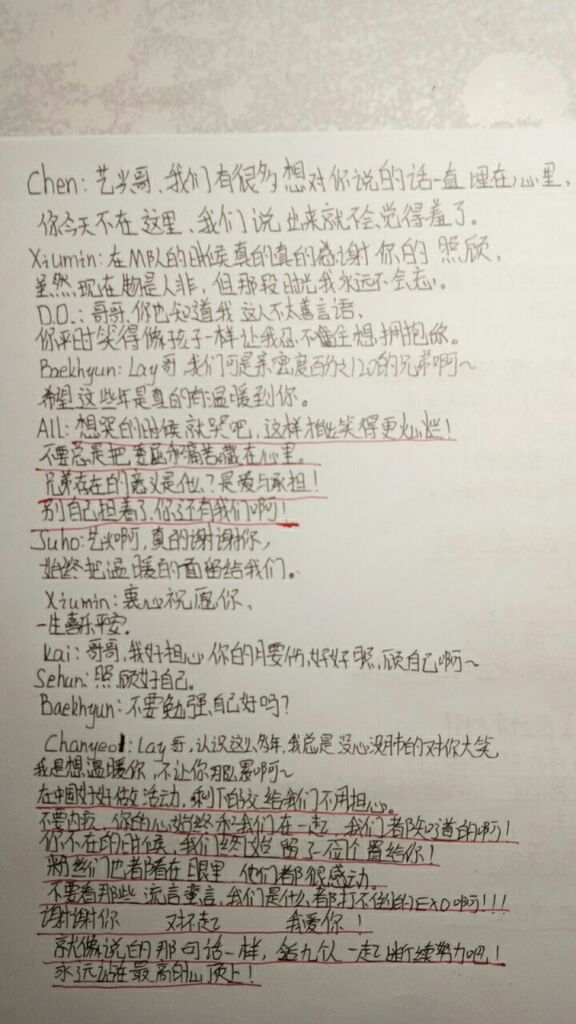 Chen: 艺兴哥、我们有很多想对你说的话一直埋在心里、
你今天不在这里、我们说出来就不会觉得羞了。
Xiumin: 在M队的时候真的真的感谢你的照顾、
虽然现在物是人非,但那段时光我永远不会忘。
D.O.: 哥哥、你也知道我这人不太善言语、
你平时笑得像孩子一样让我忍不住想拥抱你。
Baekhyun: Lay哥,我们可是亲密度百分之120的兄弟啊~
希望这些年是真的有温暖到你。
All: 想哭的时候就哭吧,这样才能笑得更灿烂!
不要总是把委屈和痛苦藏在心里。
兄弟存在的意义是什么?是爱与承担!
别自己担着了、你还有我们啊!
Juho: 艺兴啊,真的谢谢你,
始终把温暖的面留给我们。
Xiumin: 衷心祝愿你、
一生喜乐平安。
Kai: 哥哥,我好担心你的腰伤,好好照顾自己啊~
Sehun: 照顾好自己。
Baekhyun: 不要勉强自己好吗?
Chanyeol: Lay哥,认识这么多年,我总是没心没肺的对你大笑
我是想温暖你,不让你那么累啊~
在中国好好做活动,剩下的交给我们不用担心。
不要内疚、你的心始终和我们在一起、我们都知道的啊!
你不在的时候、我们终始留了位置给你!
粉丝们也都看在眼里 他们都很感动。
不要看那些流言蜚语,我们是什么都打不住的EXO啊!!!
谢谢你 对不起 我爱你!
就像说的那句话一样, 九个人一起继续努力吧!
永远站在最高的山顶上!